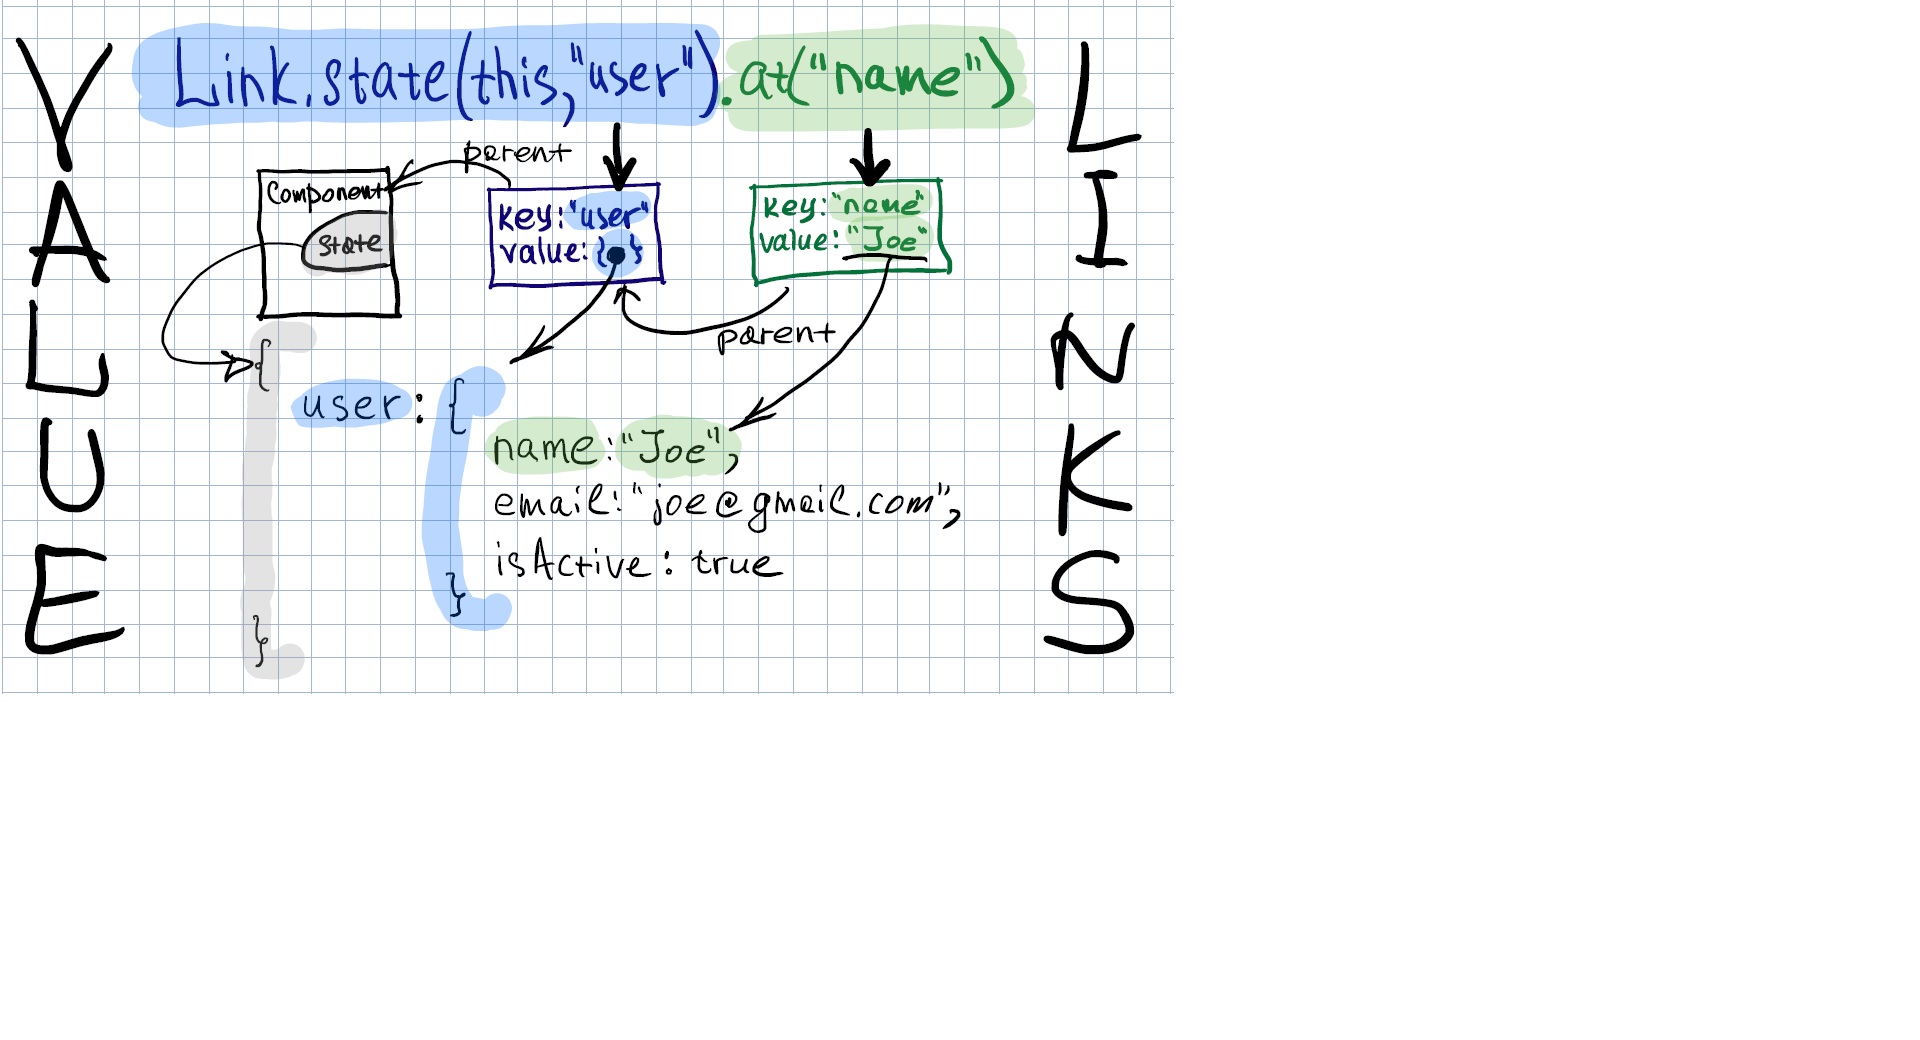 VALUE
Link.state(this,"user").at("name")
LINKS
parent
Component
state
key:"user"
value:{ }
key:"name"
value:"Joe"
parent
{
user: {
name:"Joe",
email:"joe@gmail.com",
isActive: true
}
}